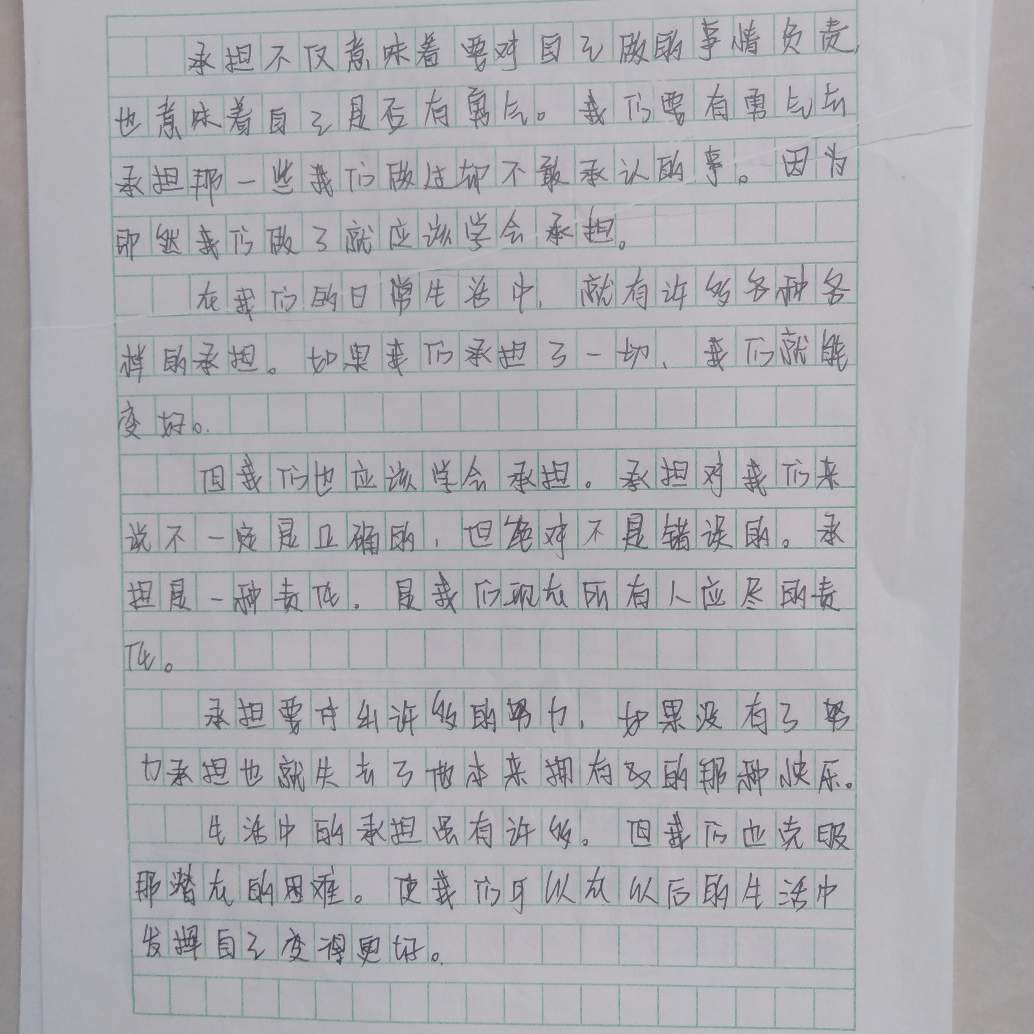 承担不仅意味着要对自己做的事情负责,
也意味着自己是否有勇气。我们要有勇气去
承担那一些我们做过却不敢承认的事。因为
即然我们做了就应该学会承担。
在我们的日常生活中,就有许多各种各
样的承担。如果我们承担了一切,我们就能
变好。
但我们也应该学会承担。承担对我们来
说不一定是正确的,但绝对不是错误的。承
担是一种责任,是我们现在所有人应尽的责
任。
承担要付出许多的努力,如果没有了努
力承担也就失去了他本来拥有的那种快乐。
生活中的承担虽有许多。但我们也克服
那潜在的困难。使我们可以在以后的生活中
发挥自己变得更好。